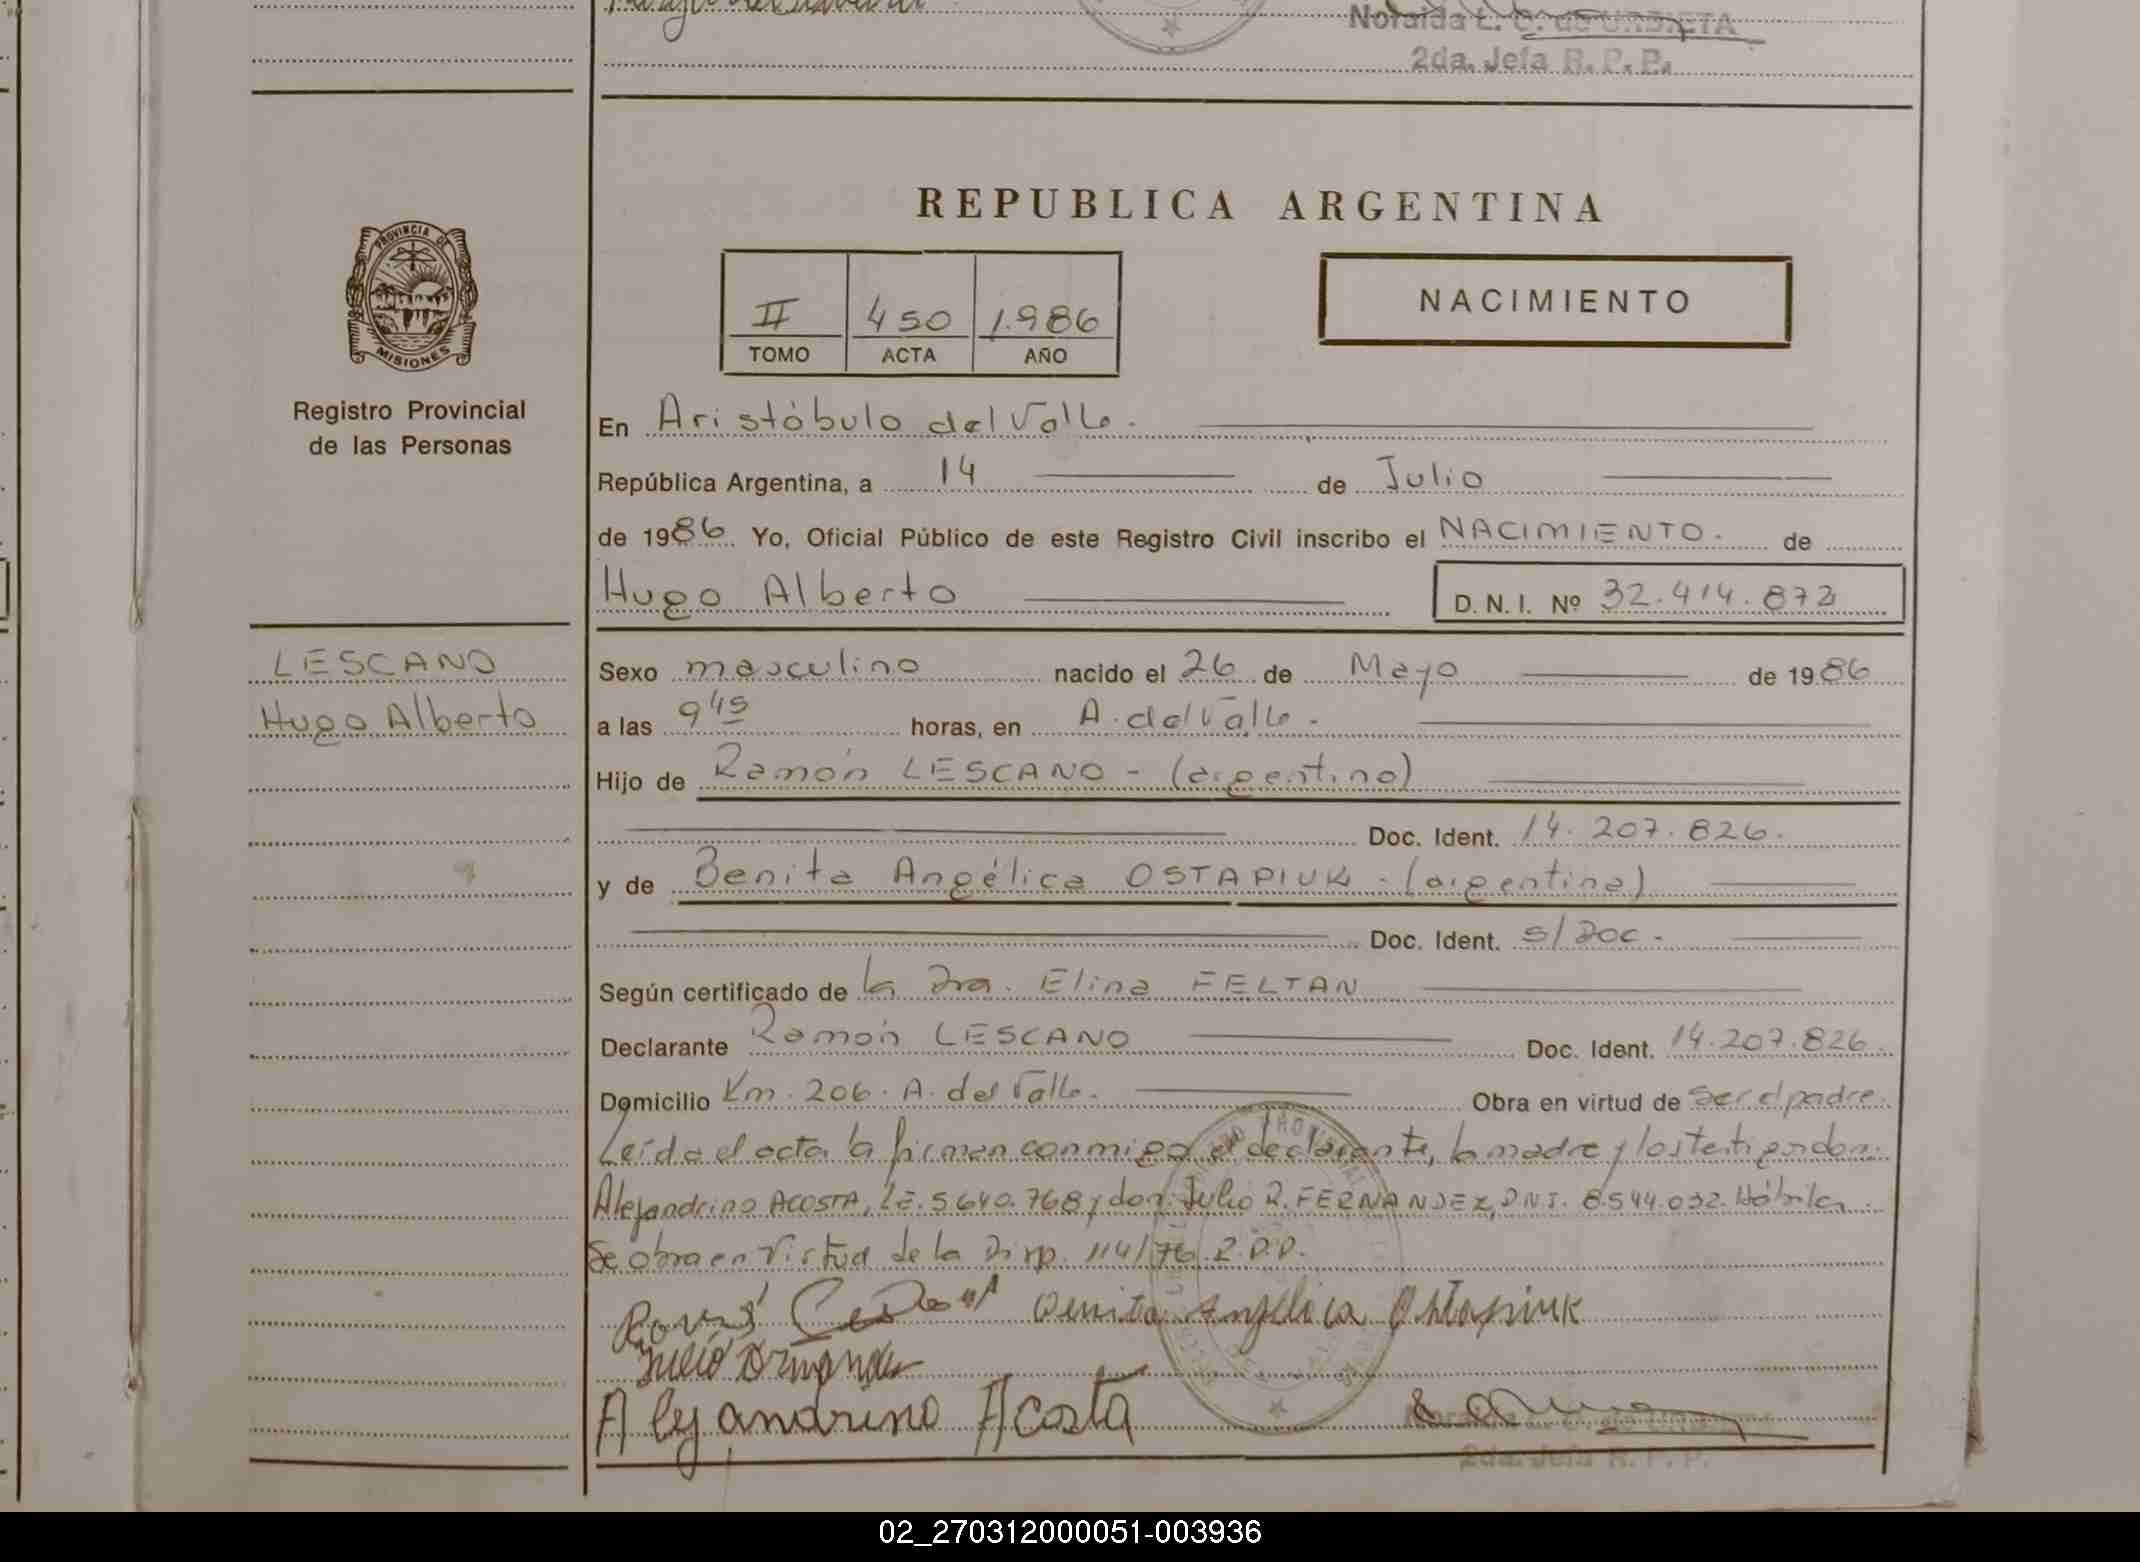 Noraida L. C. de URBIETA
2da. Jefa R. P. P.
REPUBLICA ARGENTINA
PROVINCIA DE
MISIONES
Registro Provincial
de las Personas
II 450 1.986
TOMO ACTA AÑO
NACIMIENTO
En Aristóbulo del Valle.
República Argentina, a 14 de Julio
de 1986 Yo, Oficial Público de este Registro Civil inscribo el NACIMIENTO. de
Hugo Alberto D. N. I. Nº 32.414.872
LESCANO
Hugo Alberto
Sexo masculino nacido el 26 de Mayo de 1986
a las 9 45 horas, en A. del Valle.
Hijo de Ramón LESCANO - (argentino)
Doc. Ident. 14.207.826.
y de Benita Angélica OSTAPIUK - (argentina)
Doc. Ident. s/Doc.
Según certificado de la Dra. Elina FELTAN
Declarante Ramón LESCANO Doc. Ident. 14.207.826
Domicilio Km. 206. A. del Valle. Obra en virtud de ser el padre.
Leída el acta la firman conmigo el declarante, la madre y los testigos don:
Alejandrino ACOSTA, L.E. 5.640.768 y don: Julio R. FERNANDEZ, D.N.I. 8.544.032. Hábiles.
Se obra en virtud de la Disp. 114/76. R.P.P.
Benita Angelica Ostapiuk
Julio
Alejandrino Acosta
2da. Jefa R. P. P.
02_270312000051-003936